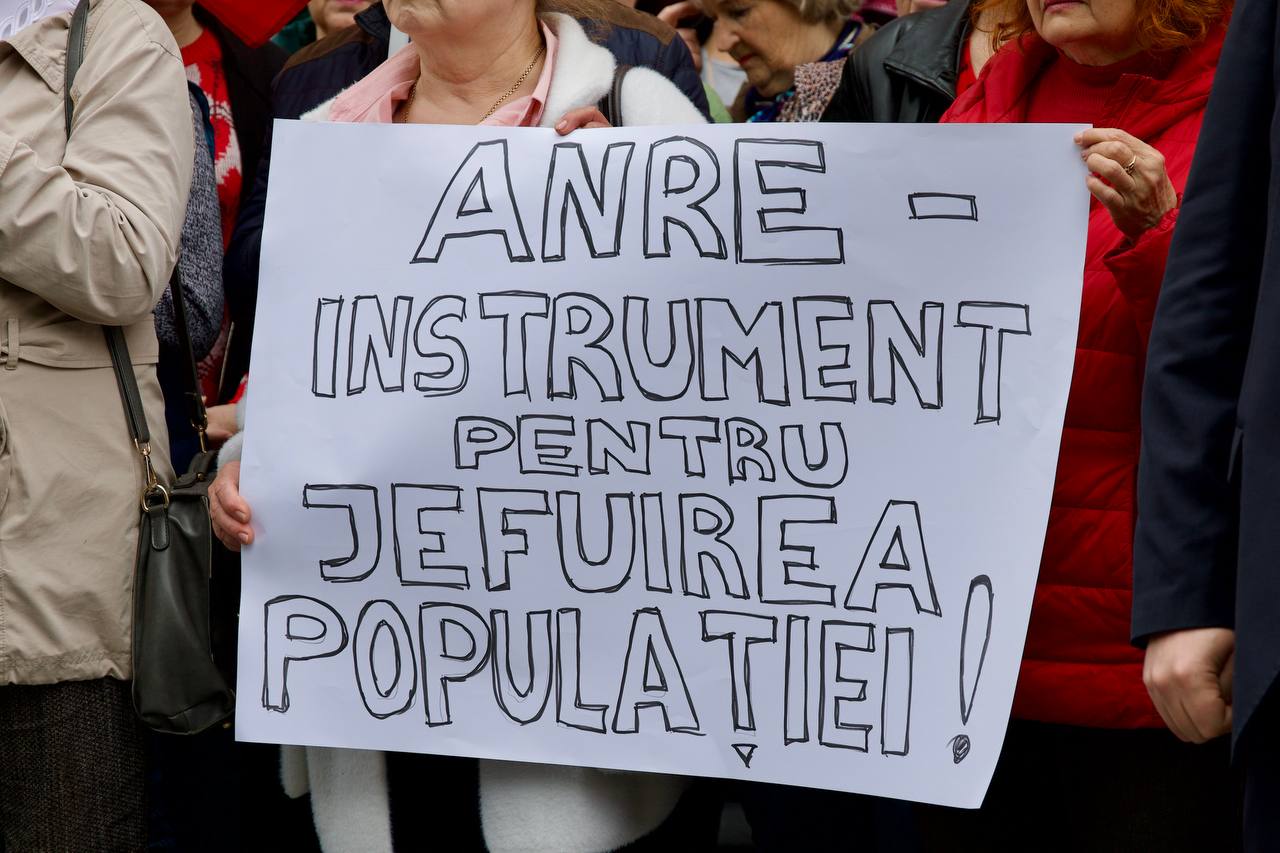 ANRE -
INSTRUMENT
PENTRU
JEFUIREA
POPULAȚIEI!